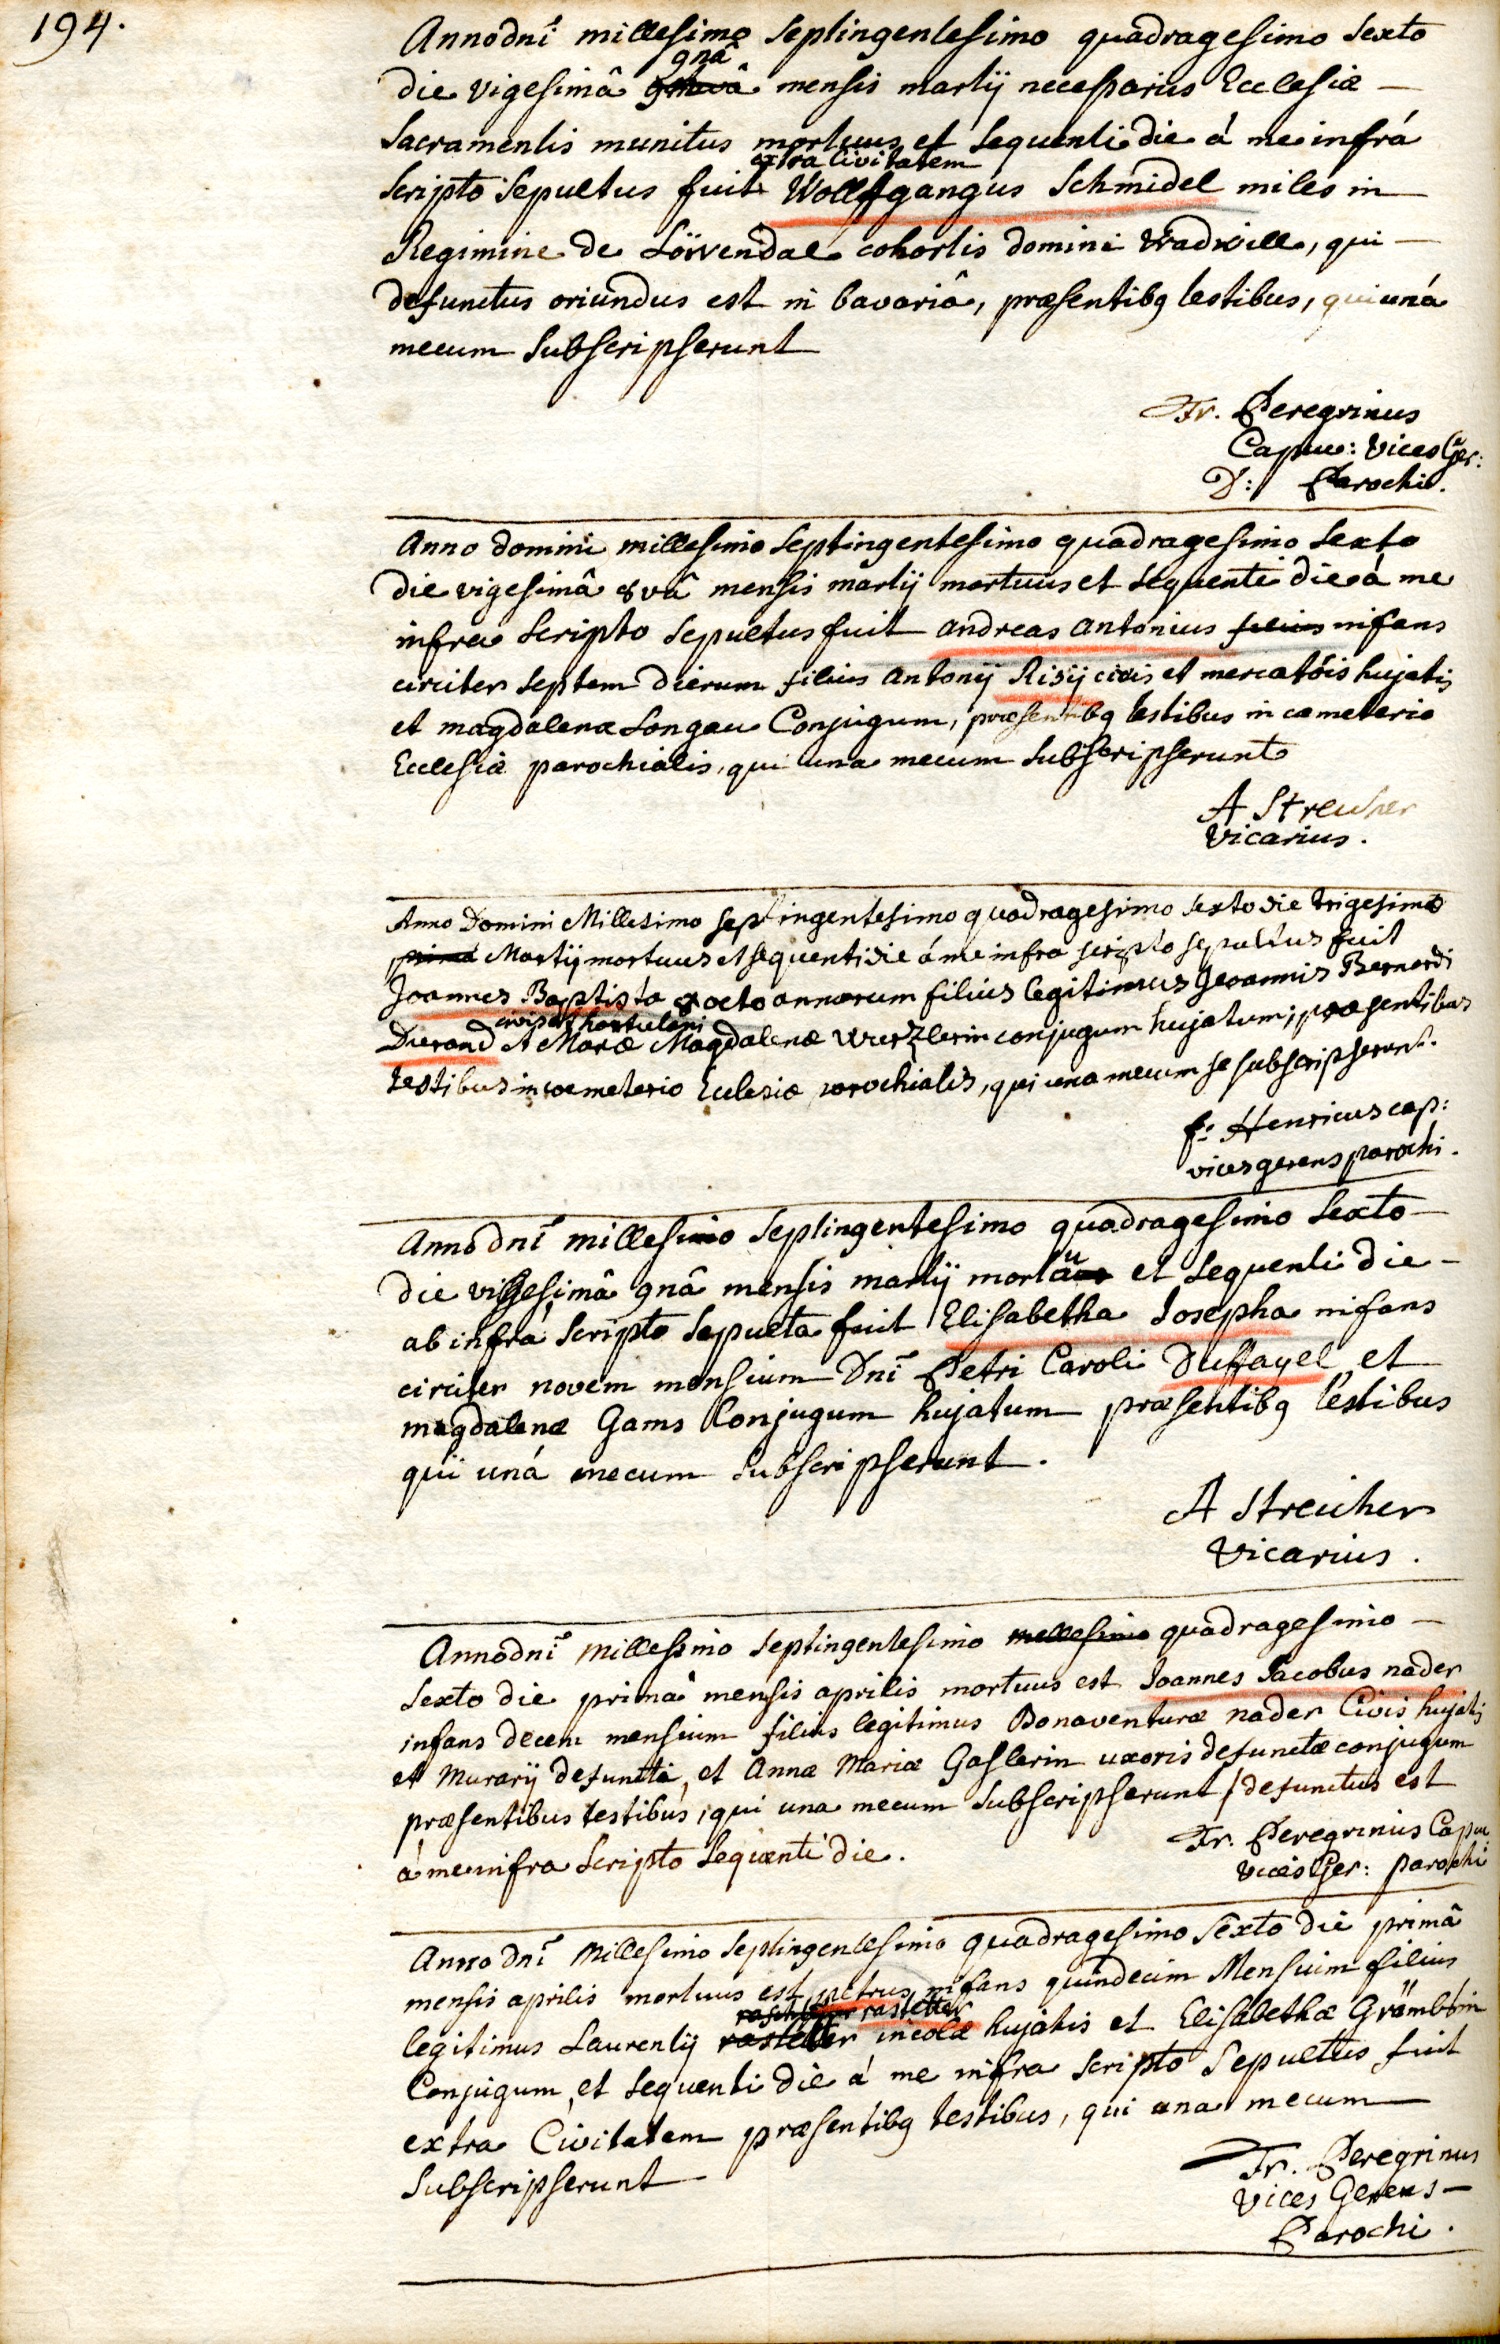 194.
Anno dni millesimo Septingentesimo quadragesimo Sexto
9nâ
die vigesimâ mensis martij necessariis Ecclesiæ —
Sacramentis munitus mortuus et Sequenti die á me infrá
extra Civitatem
Scripto Sepultus fuit Wolffgangus Schmidel miles in
Regimine de Löwendal cohortis domini Wadwille, qui —
defunctus oriundus est in bavariâ, præsentibq testibus, qui unâ
mecum Subscripserunt
Fr. Peregrinus
Capuc: Vices Ger:
D: Parochi.
Anno domini millesimo Septingentesimo quadragesimo Sexto
die vigesimâ 8vâ mensis martij mortuus et Sequenti die á me
infra Scripto Sepultus fuit andreas antonius filius infans
circiter Septem dierum filius antonij Risij civis et mercatóis hujatis
et magdalenæ Longeau Conjugum, præsentibq testibus in cæmeterio
Ecclesiæ parochialis, qui una mecum Subscripserunt
A Streicher
Vicarius.
Anno Domini Millesimo septingentesimo quadragesimo sexto die trigesimâ
prima Martij mortuus et sequenti die á me infra scripto sepultus fuit
Joannes Baptista octo annorum filius legitimus Joannis Bernardi
civis et hortulani
Durand et Mariæ Magdalenæ Wurzlerin conjugum hujatum, præsentibus
testibus in coemeterio Eclesiæ parochialis, qui una mecum se subscripserunt.
f: Henricus cap:
vices gerens parochi.
Anno dni millesimo Septingentesimo quadragesimo Sexto —
die vigesimâ 9nâ mensis martij mortua et Sequenti die —
ab infrá Scripto Sepulta fuit Elisabetha Josepha infans
circiter novem mensium Dni Petri Caroli Duffayel et
magdalenæ Gams Conjugum hujatum præsentibq testibus
qui uná mecum Subscripserunt.
A Streicher
Vicarius.
Anno dni millesimo Septingentesimo millesimo quadragesimo —
Sexto die primâ mensis aprilis mortuus est Joannes Jacobus nader
infans decem mensium filius legitimus Bonaventuræ nader Civis hujatis
et Murarij defuncti, et Annæ Mariæ Gaslerin uxoris defunctæ conjugum
præsentibus testibus, qui una mecum Subscripserunt / defunctus est
á me infra Scripto Sequenti die.
Fr. Peregrinus Capuc
vices Ger: parochi
Anno dni Millesimo Septingentesimo quadragesimo Sexto die primâ
mensis aprilis mortuus est petrus infans quindecim Mensium filius
rastetter
legitimus Laurentij rastetter incolæ hujatis et Elisabethæ Grämblin
Conjugum, et Sequenti die á me infra Scripto Sepultus fuit
extra Civitatem præsentibq testibus, qui una mecum —
Subscripserunt
Fr. Peregrinus
Vices Gerens —
Parochi.